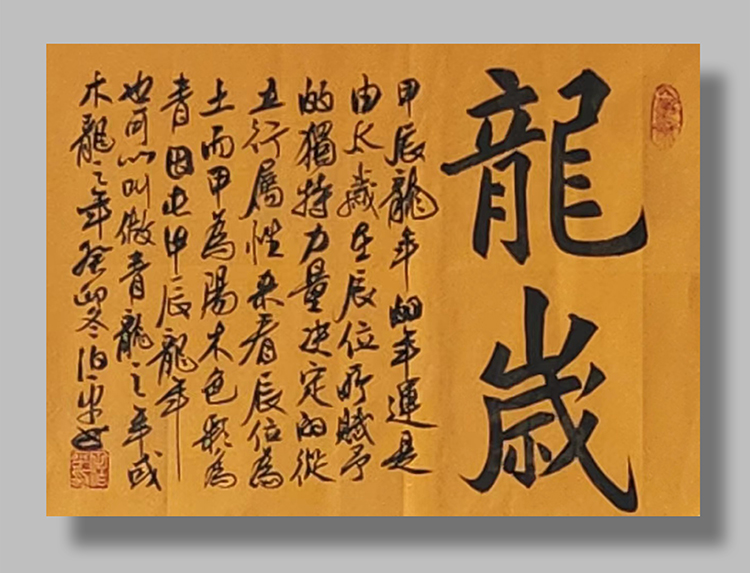 龍嵗
甲辰龍年的年運是
由太歲在辰位所賦予
的獨特力量決定的從
五行屬性來看辰位為
土而甲為陽木色彩為
青因此甲辰龍年
也可以叫做青龍之年或
木龍之年癸卯冬